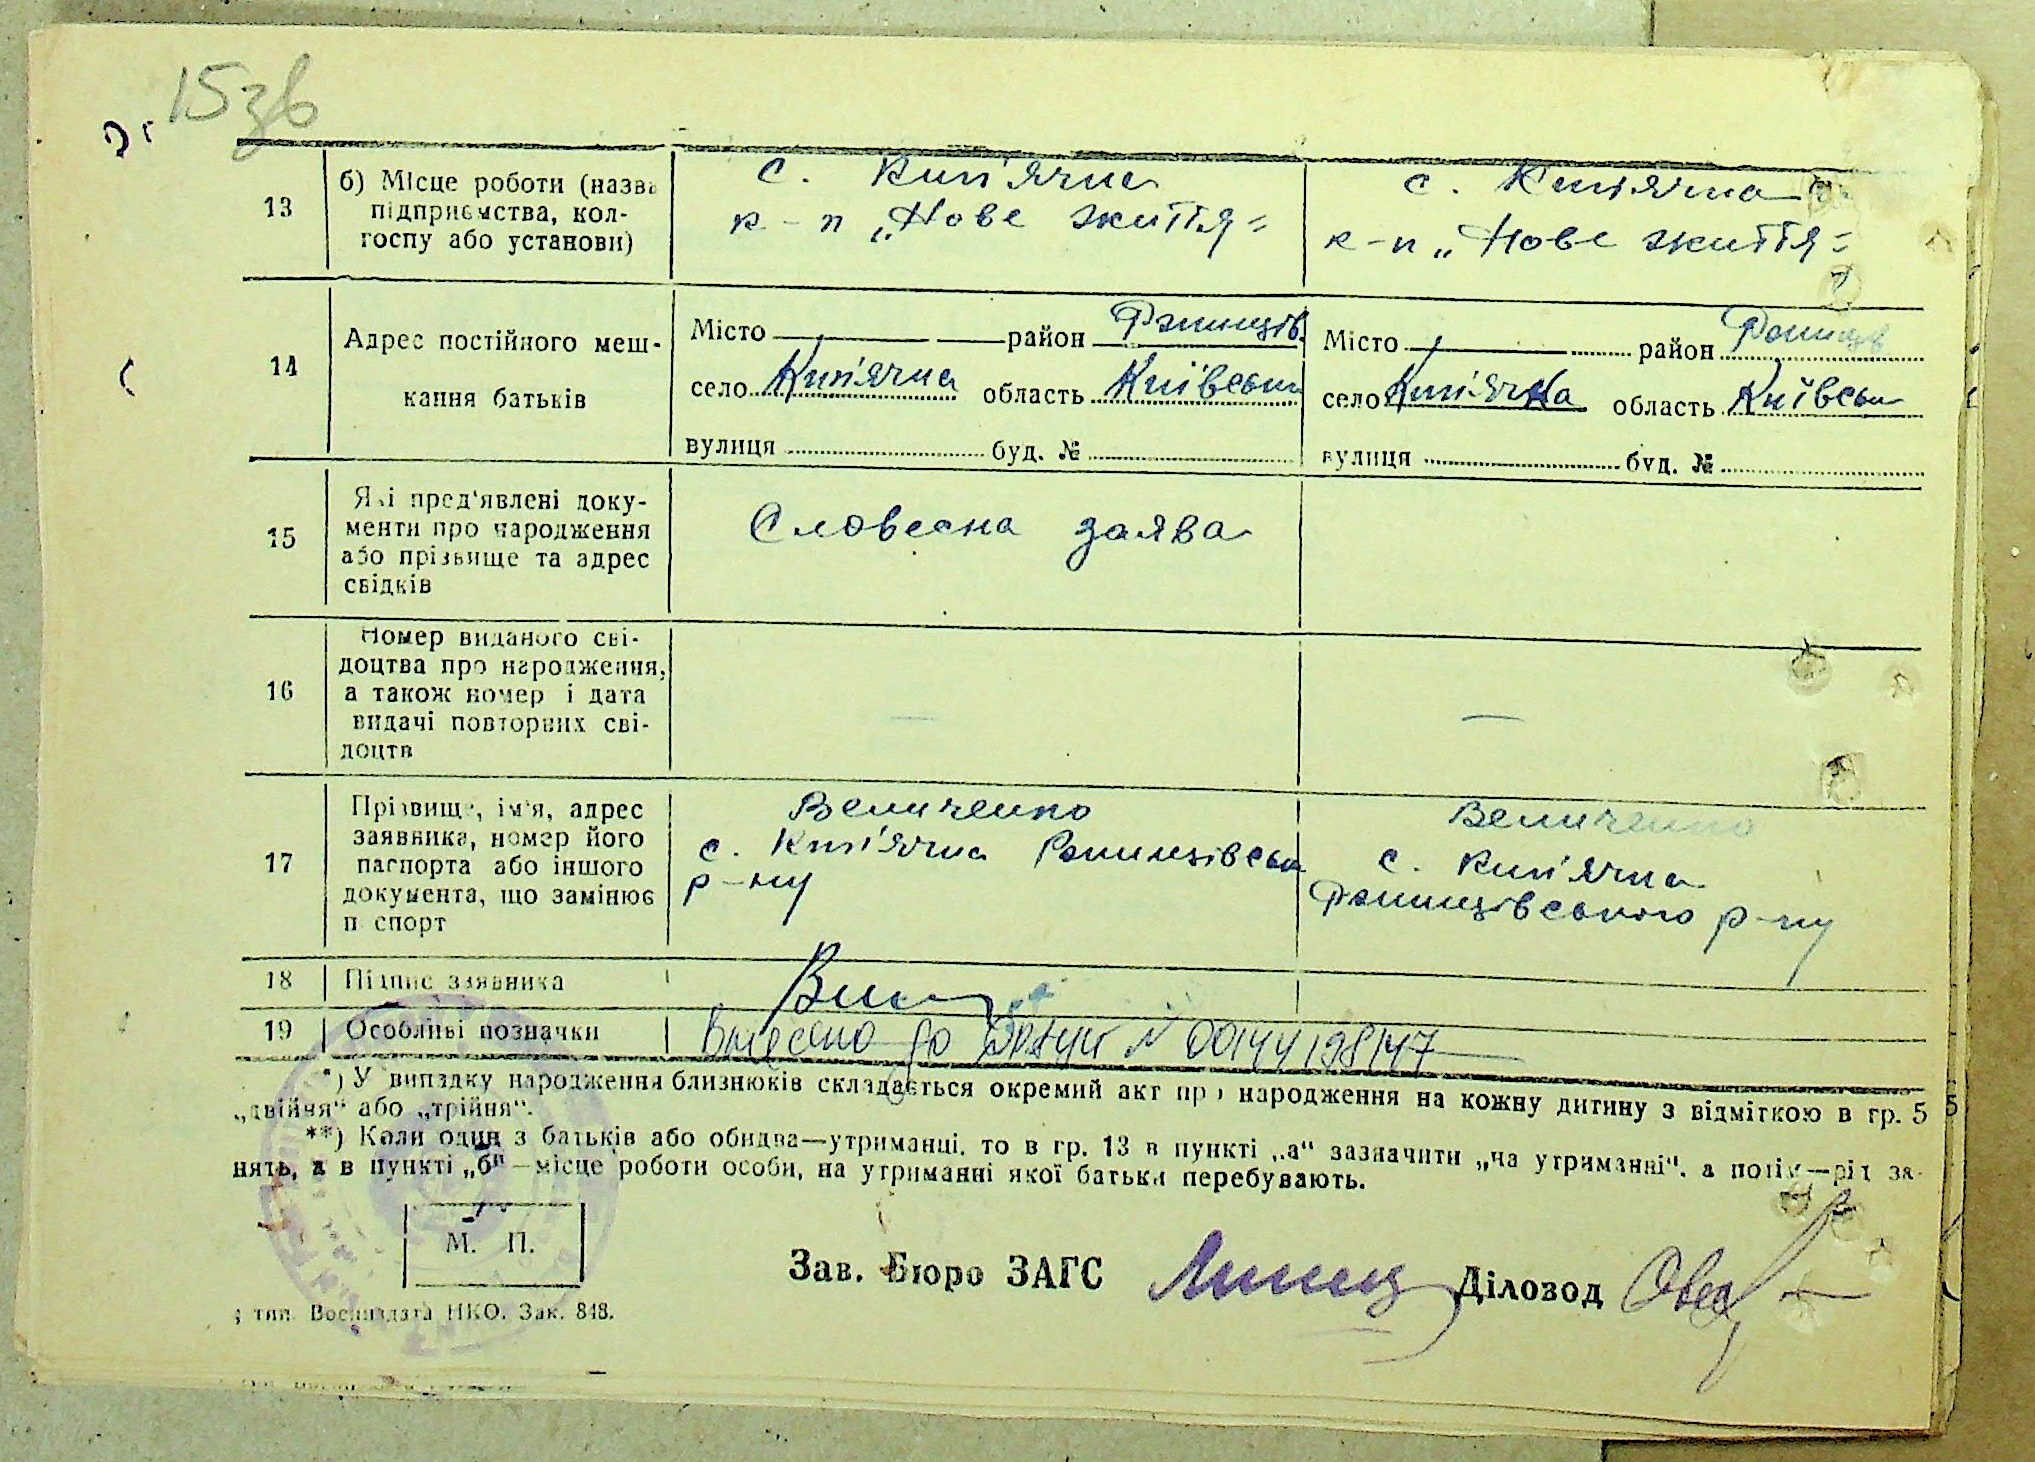 15зв
13
б) Місце роботи (назва
підприємства, кол-
госпу або установи)
с. Кип'ячка
к-п „Нове життя"
с. Кип'ячка
к-п „Нове життя"
14
Адрес постійного меш-
кання батьків
Місто район
село Кип'ячка область Київськ
вулиця буд. №
Місто район
село Кип'ячка область Київськ
вулиця буд. №
15
Які пред'явлені доку-
менти про народження
або прізвище та адрес
свідків
Словесна заява
16
Номер виданого сві-
доцтва про народження,
а також номер і дата
видачі повторних сві-
доцтв
—
—
17
Прізвище, ім'я, адрес
заявника, номер його
паспорта або іншого
документа, що замінює
п спорт
Величенко
с. Кип'ячка
р-ну
Величенко
с. Кип'ячка
р-ну
18
Підпис заявника
19
Особливі позначки
Внесено до ДРАЦС № 00144198147
*) У випадку народження близнюків складається окремий акт про народження на кожну дитину з відміткою в гр. 5
„двійня" або „трійня".
**) Коли один з батьків або обидва—утриманці, то в гр. 13 в пункті „а" зазначити „на утриманні", а потім—рід за-
нять, а в пункті „б"—місце роботи особи, на утриманні якої батьки перебувають.
М. П.
Зав. Бюро ЗАГС
Діловод
; тип. Воениздата НКО. Зак. 848.